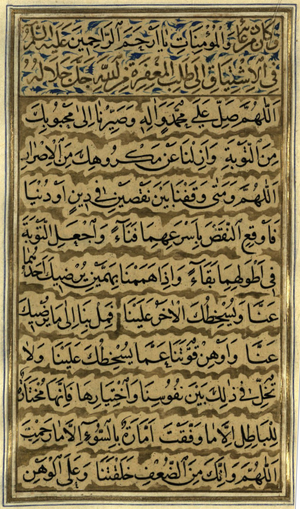 وكان من دعائه عليه السلام
في الاشتياق الى طلب المغفرة من الله جل جلاله
اللهم صل على محمد واله وصيرنا الى محبوبك
من التوبة وازلنا عن مكروهك من الاصرار
اللهم ومتى وقفنا بين نقصين في دين او دنيا
فاوقع النقص باسرعهما فناء واجعل التوبة
في اطولهما بقاء واذا هممنا بهمين يرضيك احدهما
عنا ويسخطك الاخر علينا فمل بنا الى ما يرضيك
عنا واوهن قوتنا عما يسخطك علينا ولا
تخل في ذلك بين نفوسنا واختيارها فانها مختارة
للباطل الا ما وفقت امارة بالسوء الا ما رحمت
اللهم وانك من الضعف خلقتنا وعلى الوهن